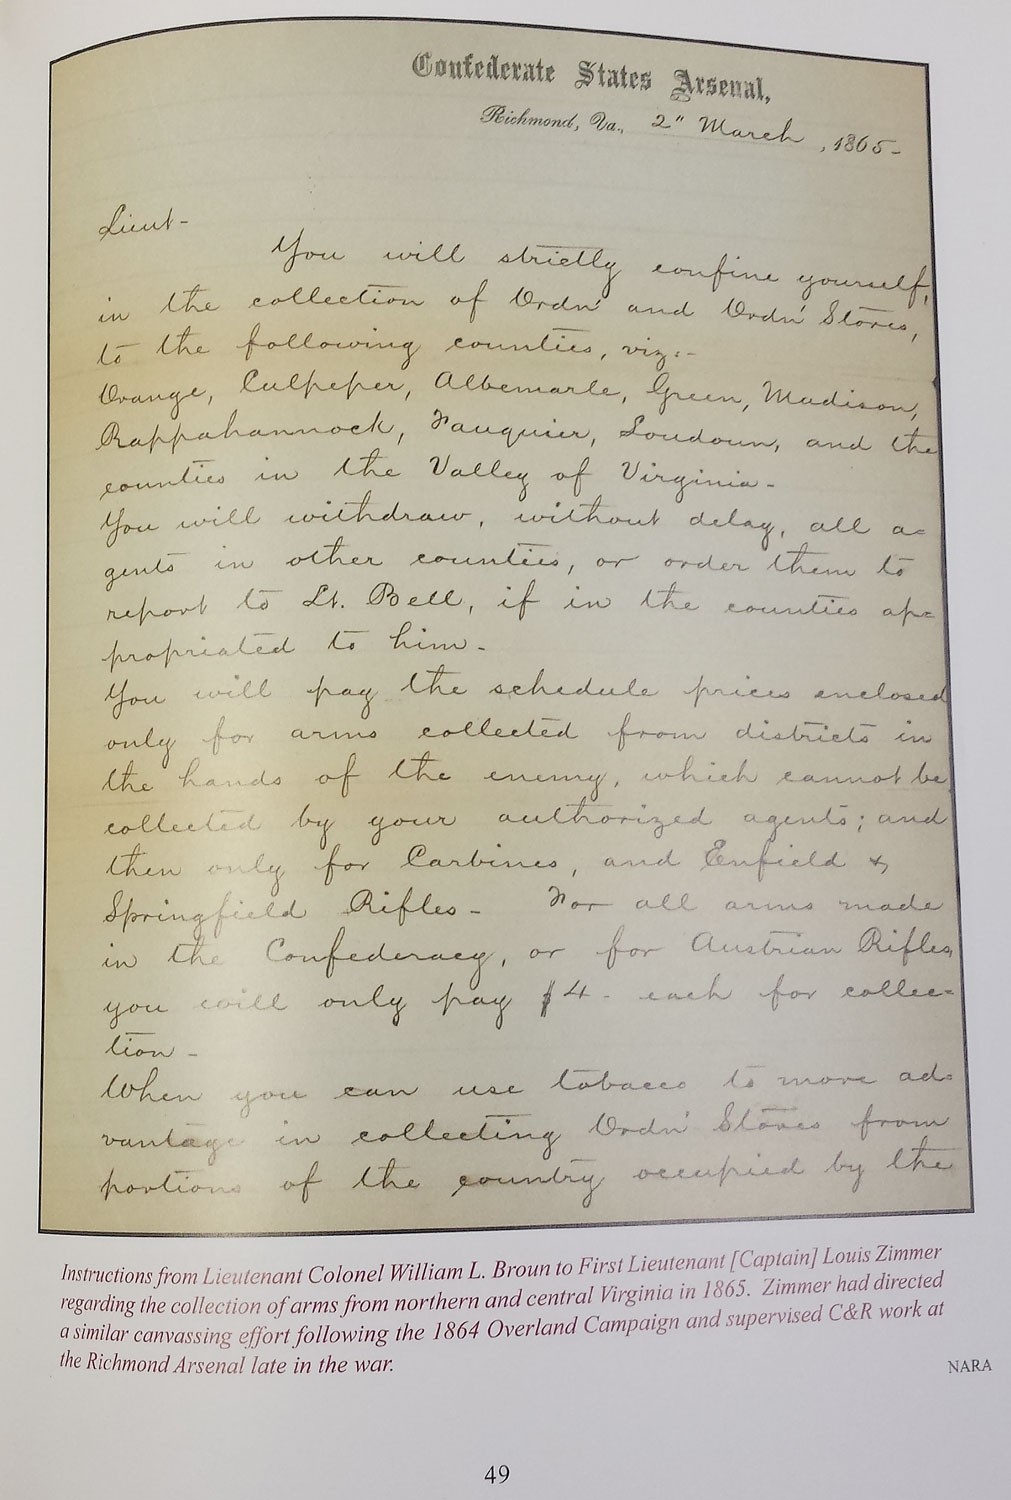 Confederate States Arsenal,
Richmond, Va., 2" March, 1865-
Lieut-
You will strictly confine yourself,
in the collection of Ordn' and Ordn' Stores,
to the following counties, viz:-
Orange, Culpeper, Albemarle, Green, Madison,
Rappahannock, Fauquier, Loudoun, and the
counties in the Valley of Virginia-
You will withdraw, without delay, all a=
gents in other counties, or order them to
report to Lt. Bell, if in the counties ap=
propriated to him-
You will pay the schedule prices enclosed
only for arms collected from districts in
the hands of the enemy, which cannot be
collected by your authorized agents; and
then only for Carbines, and Enfield &
Springfield Rifles- For all arms made
in the Confederacy, or for Austrian Rifles,
you will only pay $4- each for collec=
tion-
When you can use tobacco to more ad=
vantage in collecting Ordn' Stores from
portions of the country occupied by the
Instructions from Lieutenant Colonel William L. Broun to First Lieutenant [Captain] Louis Zimmer
regarding the collection of arms from northern and central Virginia in 1865. Zimmer had directed
a similar canvassing effort following the 1864 Overland Campaign and supervised C&R work at
the Richmond Arsenal late in the war.
NARA
49